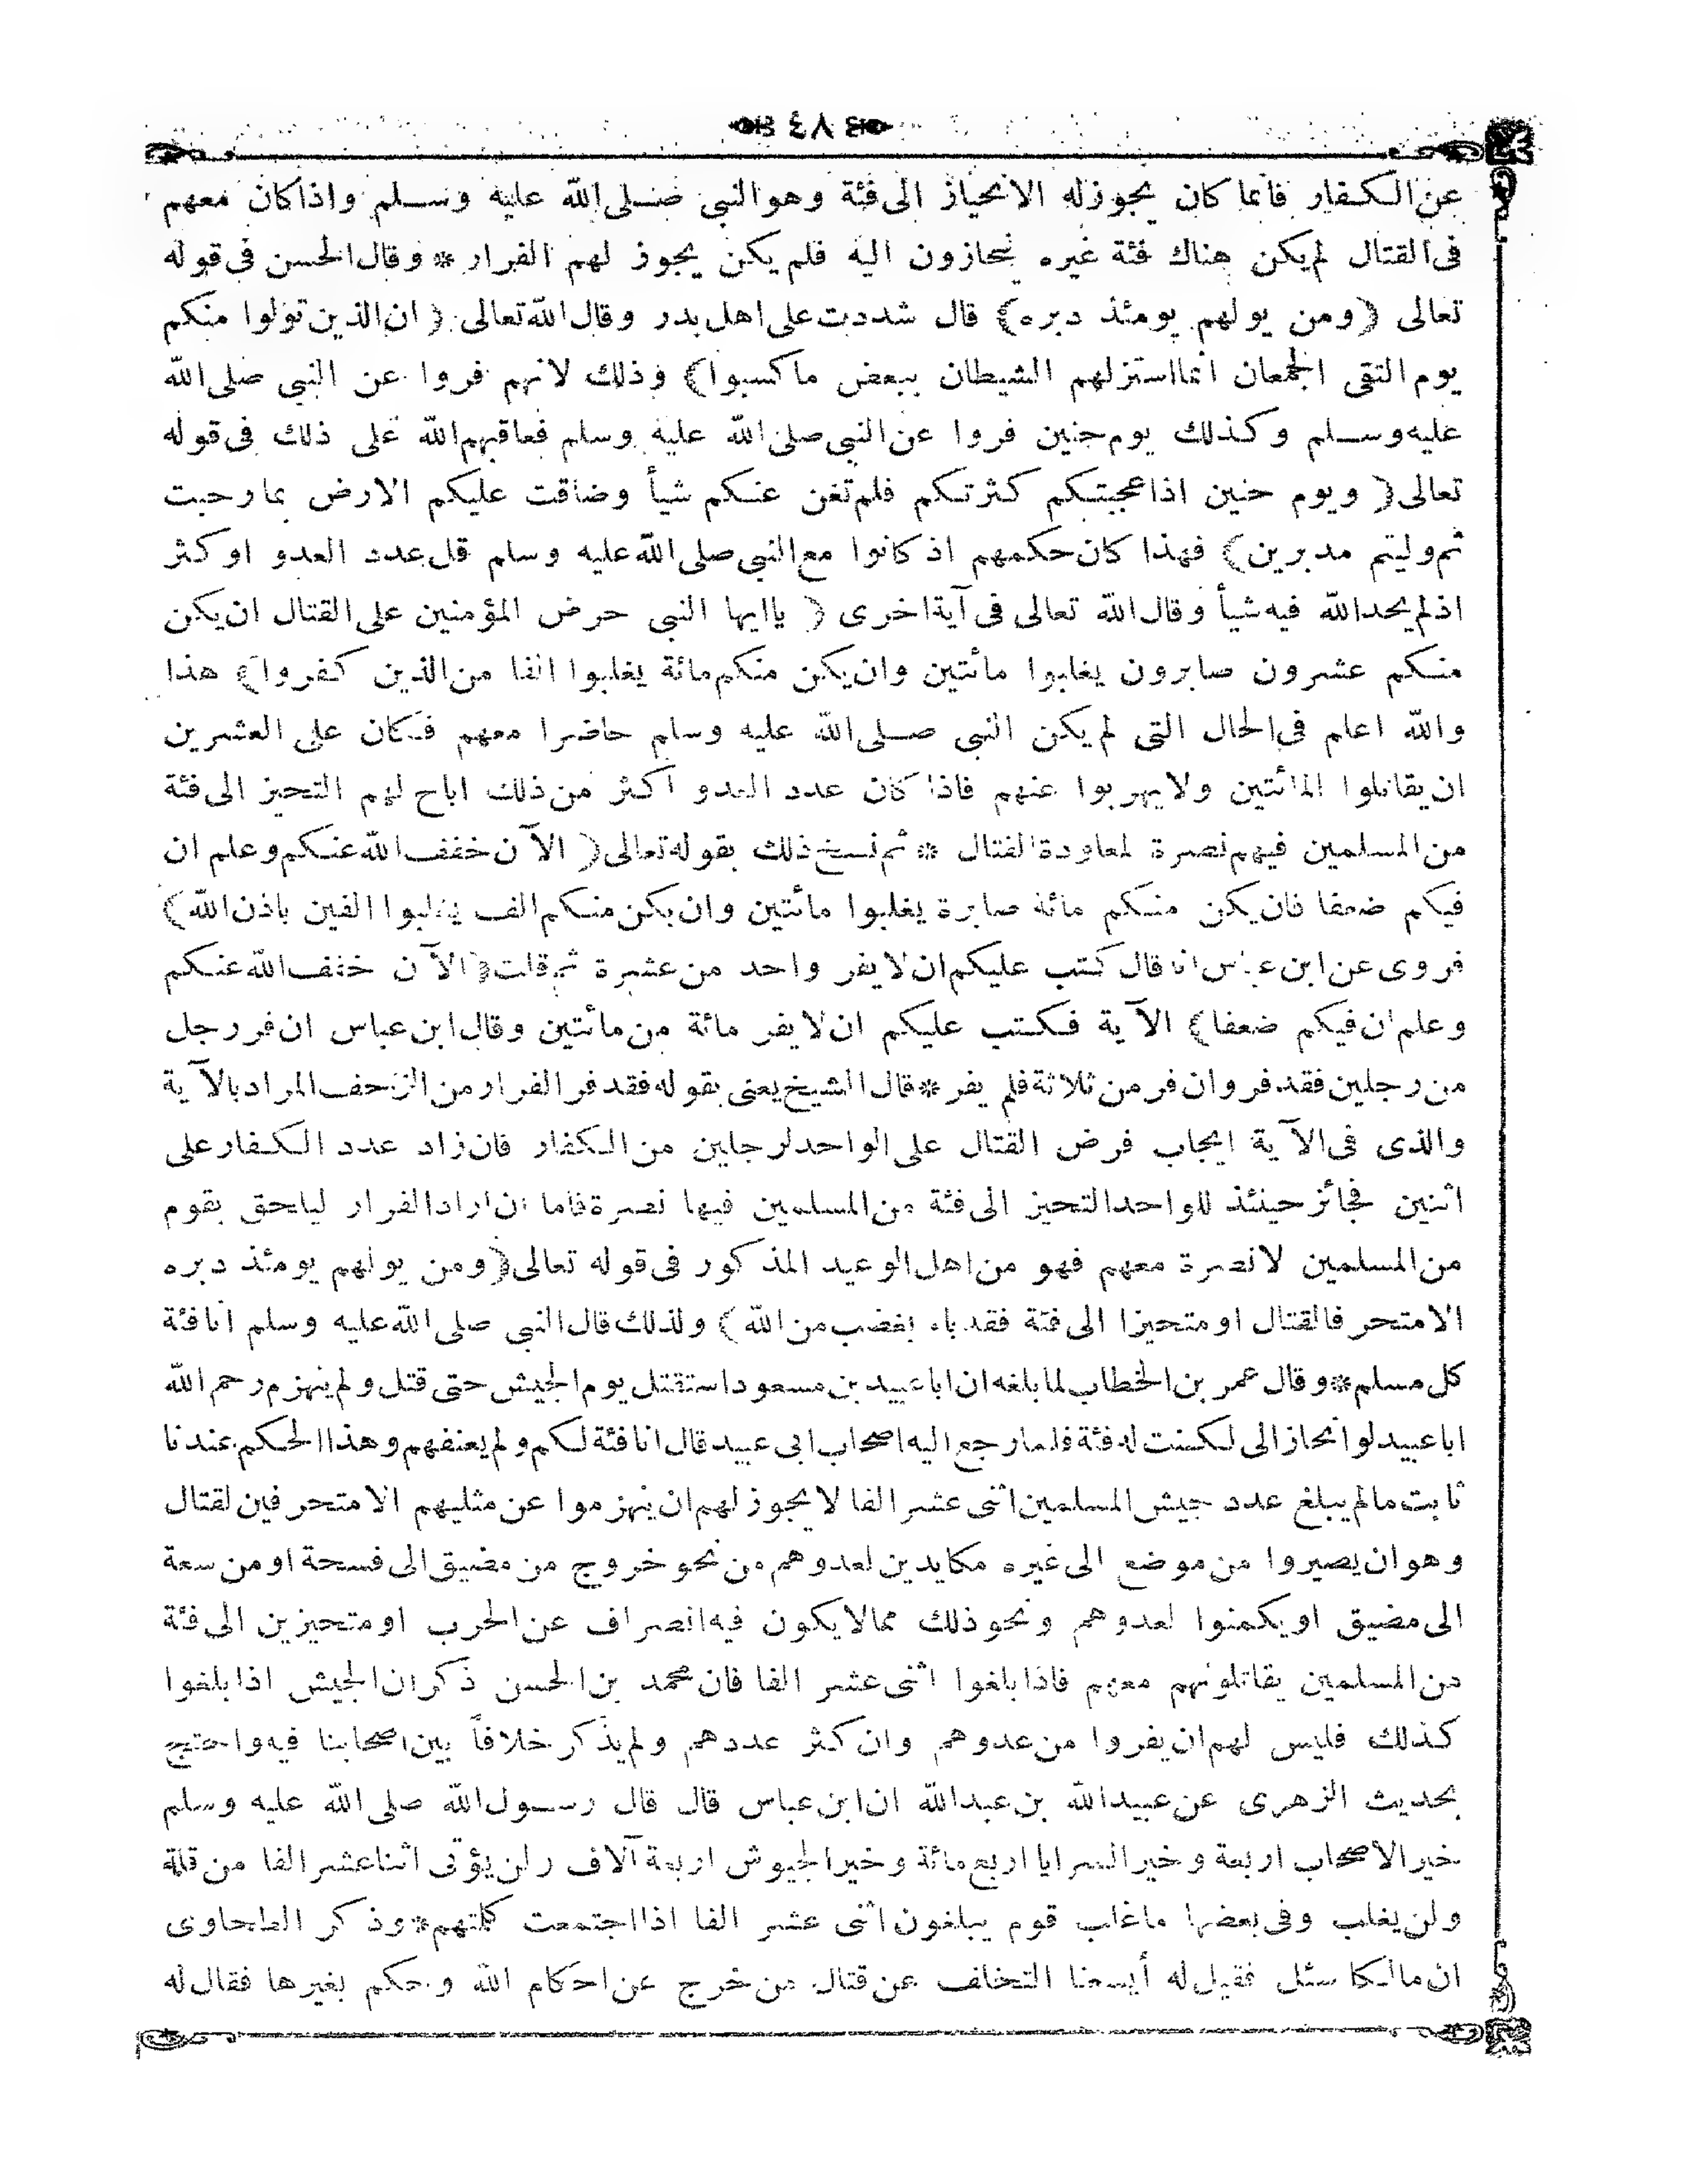 ٤٨
عن الكفار فانما كان يجوزله الانحياز الى فئة وهو النبى صلى الله عليه وسلم واذا كان معهم
فى القتال لم يكن هناك فئة غيره ينحازون اليه فلم يكن يجوز لهم الفرار * وقال الحسن فى قوله
تعالى ﴿ ومن يولهم يومئذ دبره ﴾ قال شددت على اهل بدر وقال الله تعالى ﴿ ان الذين تولوا منكم
يوم التقى الجمعان انما استزلهم الشيطان ببعض ما كسبوا ﴾ وذلك لانهم فروا عن النبى صلى الله
عليه وسلم وكذلك يوم حنين فروا عن النبى صلى الله عليه وسلم فعاقبهم الله على ذلك فى قوله
تعالى ﴿ ويوم حنين اذ اعجبتكم كثرتكم فلم تغن عنكم شيأ وضاقت عليكم الارض بما رحبت
ثم وليتم مدبرين ﴾ فهذا كان حكمهم اذ كانوا مع النبى صلى الله عليه وسلم قل عدد العدو او كثر
اذ لم يحد الله فيه شيأ وقال الله تعالى فى آية اخرى ﴿ يا ايها النبى حرض المؤمنين على القتال ان يكن
منكم عشرون صابرون يغلبوا مائتين وان يكن منكم مائة يغلبوا الفا من الذين كفروا ﴾ هذا
والله اعلم فى الحال التى لم يكن النبى صلى الله عليه وسلم حاضرا معهم فكان على العشرين
ان يقاتلوا المائتين ولا يهربوا عنهم فاذا كان عدد العدو اكثر من ذلك اباح لهم التحيز الى فئة
من المسلمين فيهم نصرة لمعاودة القتال * ثم نسخ ذلك بقوله تعالى ﴿ الآن خفف الله عنكم وعلم ان
فيكم ضعفا فان يكن منكم مائة صابرة يغلبوا مائتين وان يكن منكم الف يغلبوا الفين باذن الله ﴾
فروى عن ابن عباس انه قال كتب عليكم ان لا يفر واحد من عشرة ثم قلت ﴿ الآن خفف الله عنكم
وعلم ان فيكم ضعفا ﴾ الآية فكتب عليكم ان لا يفر مائة من مائتين وقال ابن عباس ان فر رجل
من رجلين فقد فر وان فر من ثلاثة فلم يفر * قال الشيخ يعنى بقوله فقد فر الفرار من الزحف المراد بالآية
والذى فى الآية ايجاب فرض القتال على الواحد لرجلين من الكفار فان زاد عدد الكفار على
اثنين فجائز حينئذ للواحد التحيز الى فئة من المسلمين فيها نصرة فاما ان اراد الفرار ليلحق بقوم
من المسلمين لا نصرة معهم فهو من اهل الوعيد المذكور فى قوله تعالى ﴿ ومن يولهم يومئذ دبره
الا متحر فا لقتال او متحيزا الى فئة فقد باء بغضب من الله ﴾ ولذلك قال النبى صلى الله عليه وسلم انا فئة
كل مسلم * وقال عمر بن الخطاب لما بلغه ان ابا عبيد بن مسعود استقتل يوم الجيش حتى قتل ولم ينهزم رحم الله
ابا عبيد لو انحاز الى لكنت له فئة فلما رجع اليه اصحاب ابى عبيد قال انا فئة لكم ولم يعنفهم وهذا الحكم عندنا
ثابت ما لم يبلغ عدد جيش المسلمين اثنى عشر الفا لا يجوز لهم ان ينهزموا عن مثليهم الا متحرفين لقتال
وهو ان يصيروا من موضع الى غيره مكايدين لعدوهم من نحو خروج من مضيق الى فسحة او من سعة
الى مضيق او يكمنوا لعدوهم ونحو ذلك مما لا يكون فيه انصراف عن الحرب او متحيزين الى فئة
من المسلمين يقاتلونهم معهم فاذا بلغوا اثنى عشر الفا فان محمد بن الحسن ذكر ان الجيش اذا بلغوا
كذلك فليس لهم ان يفروا من عدوهم وان كثر عددهم ولم يذكر خلافاً بين اصحابنا فيه واحتج
بحديث الزهرى عن عبيد الله بن عبدالله ان ابن عباس قال قال رسول الله صلى الله عليه وسلم
خير الاصحاب اربعة وخير السرايا اربع مائة وخير الجيوش اربعة آلاف ولن يؤتى اثنا عشر الفا من قلة
ولن يغلب وفى بعضها ما غلب قوم يبلغون اثنى عشر الفا اذا اجتمعت كلمتهم * وذكر الطحاوى
ان مالكا سئل فقيل له أيسعنا التخلف عن قتال من خرج عن احكام الله وحكم بغيرها فقال له